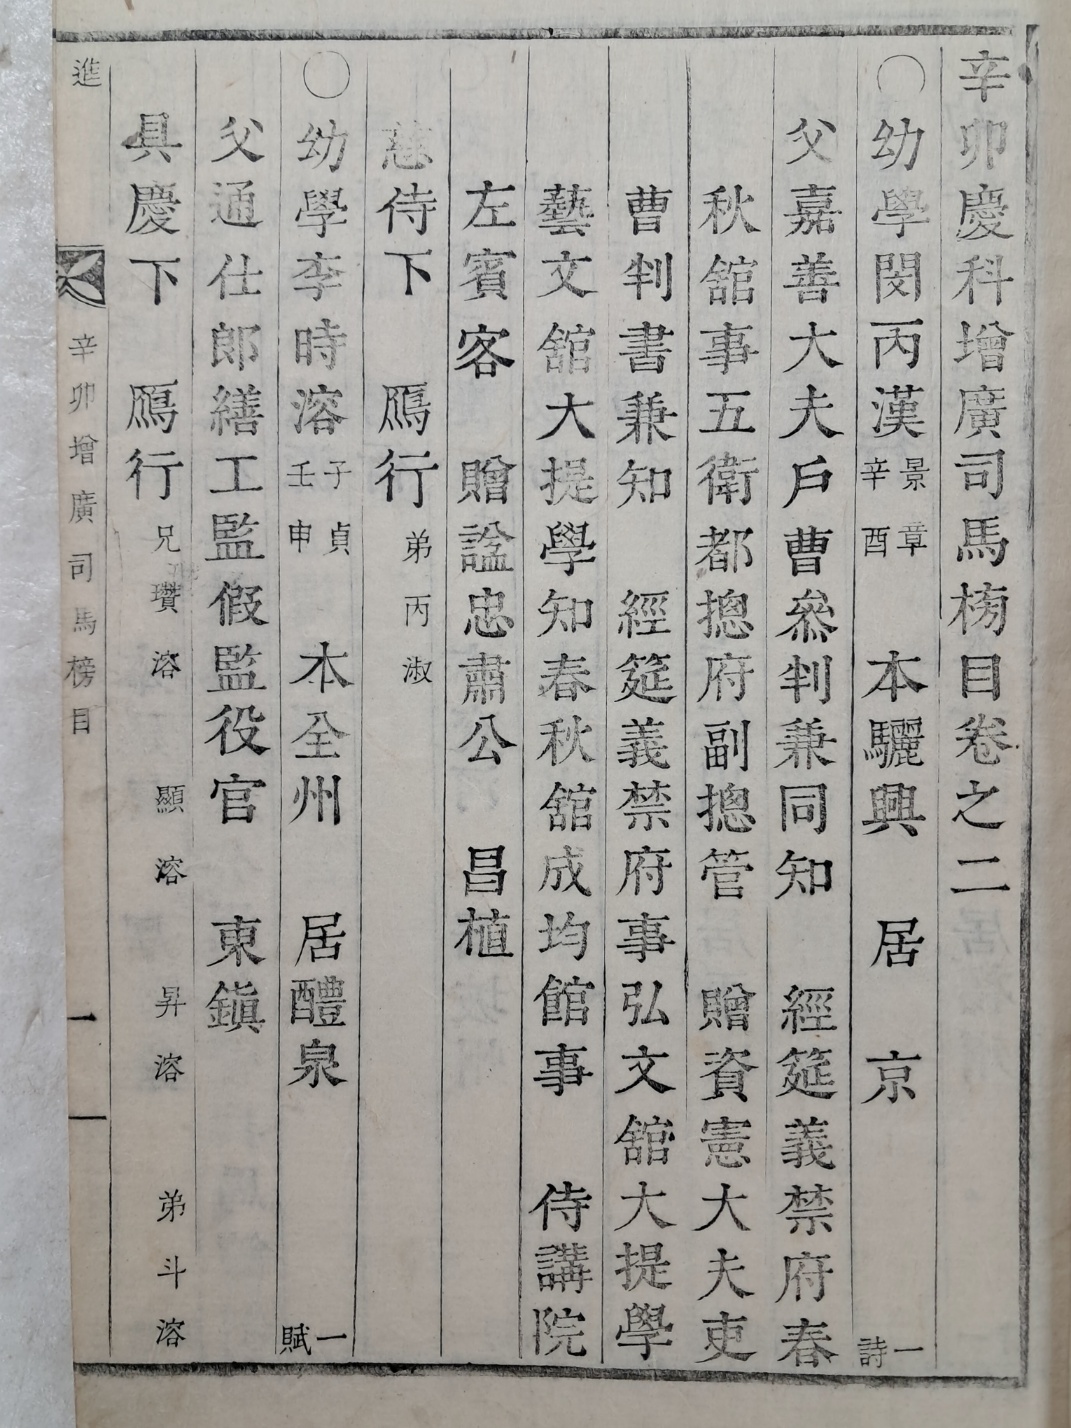 辛卯慶科增廣司馬榜目卷之二
○幼學閔丙漢 景章 辛酉 本驪興 居 京 一詩
父嘉善大夫戶曹叅判兼同知 經筵義禁府春
秋舘事五衛都摠府副摠管 贈資憲大夫吏
曹判書兼知 經筵義禁府事弘文舘大提學
藝文舘大提學知春秋舘成均館事 侍講院
左賓客 贈諡忠肅公 昌植
慈侍下 鴈行 弟丙淑
○幼學李時溶 子貞 壬申 本全州 居醴泉 一賦
父通仕郎繕工監假監役官 東鎭
具慶下 鴈行 兄瓚溶 顯溶 昇溶 弟斗溶
進 辛卯增廣司馬榜目 一